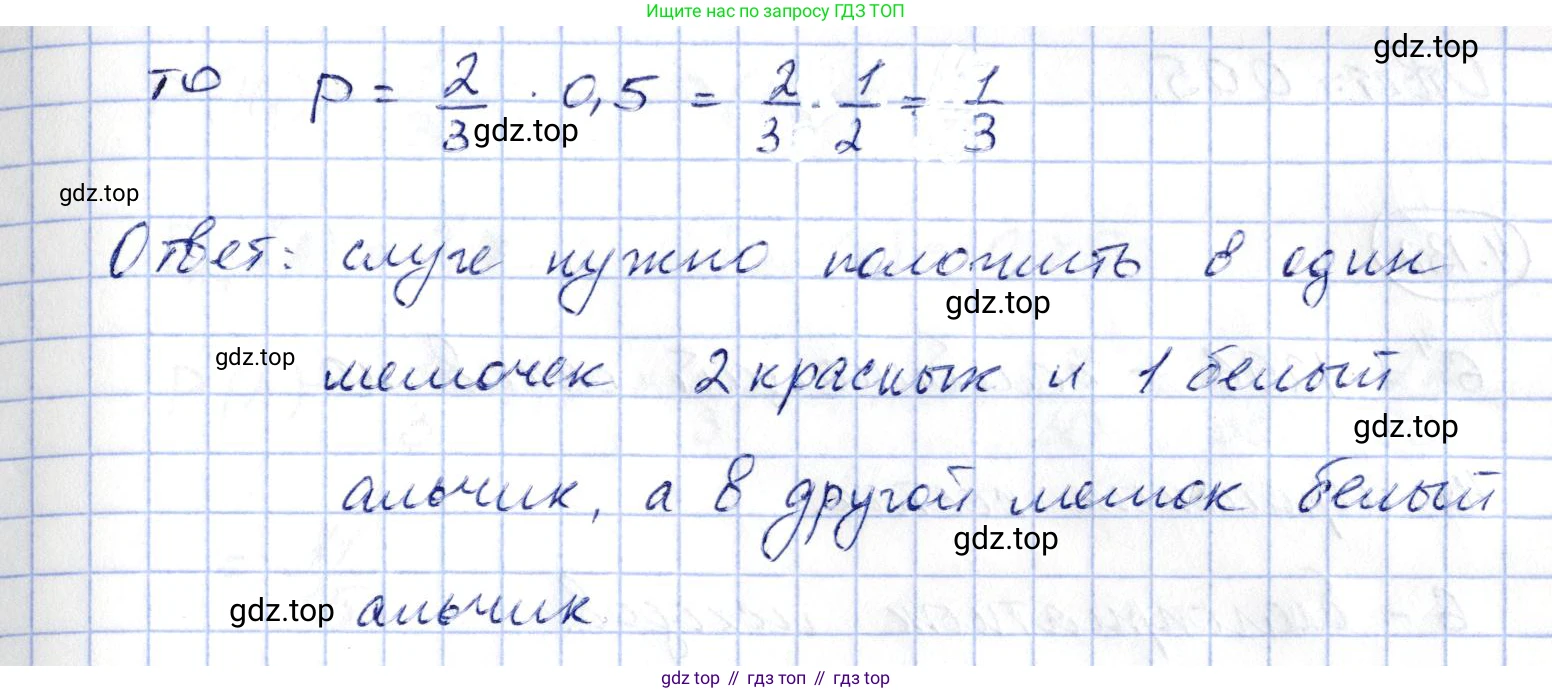 Ищите нас по запросу ГДЗ ТОП
gdz.top
то p = 2/3 · 0,5 = 2/3 · 1/2 = 1/3
gdz.top
gdz.top
Ответ: слуге нужно положить в один
gdz.top
gdz.top
мешочек 2 красных и 1 белый
gdz.top
альчик, а в другой мешок белый
gdz.top
gdz.top
альчик
gdz top // гдз топ // гдз top